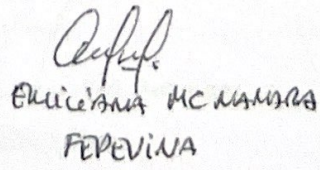 EMILIANA MC NAMARA
FEPEVINA